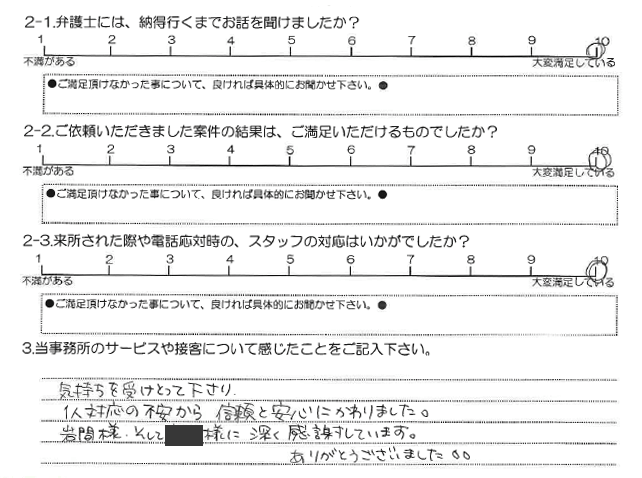 2-1.弁護士には、納得行くまでお話を聞けましたか？
1 2 3 4 5 6 7 8 9 10
不満がある 大変満足している
●ご満足頂けなかった事について、良ければ具体的にお聞かせ下さい。●
2-2.ご依頼いただきました案件の結果は、ご満足いただけるものでしたか？
1 2 3 4 5 6 7 8 9 10
不満がある 大変満足している
●ご満足頂けなかった事について、良ければ具体的にお聞かせ下さい。●
2-3.来所された際や電話応対時の、スタッフの対応はいかがでしたか？
1 2 3 4 5 6 7 8 9 10
不満がある 大変満足している
●ご満足頂けなかった事について、良ければ具体的にお聞かせ下さい。●
3.当事務所のサービスや接客について感じたことをご記入下さい。
気持ちを受けとって下さり.
1人対応の不安から 信頼と安心にかわりました。
岩間様.そして 様に 深く感謝しています。
ありがとうございました